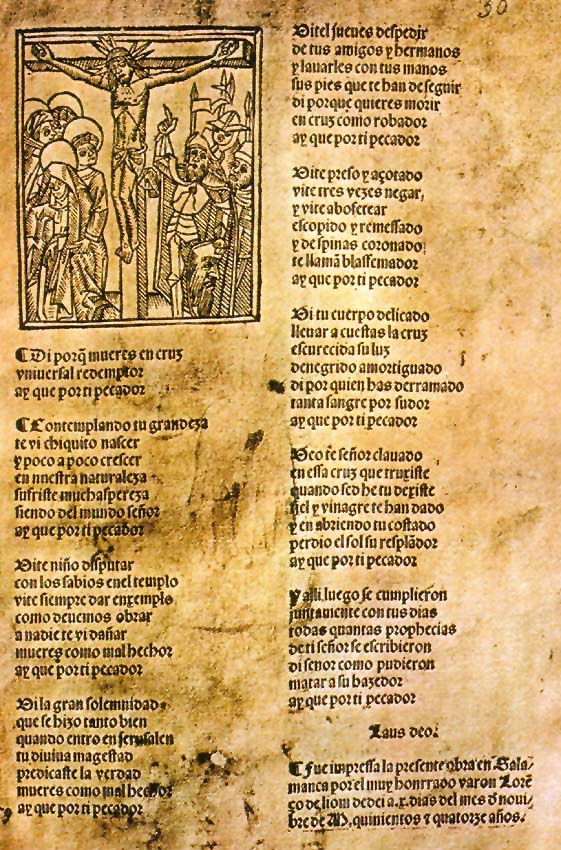 ¶Di porq̃ mueres en cruz
vniuersal redemptor
ay que por ti pecador
¶Contemplando tu grandeza
te vi chiquito nascer
y poco a poco crescer
en nuestra naturaleza
sufriste mucha spereza
siendo del mundo señor
ay que por ti pecador
Vite niño disputar
con los sabios enel templo
vite siempre dar enxemplo
como deuemos obrar
a nadie te vi dañar
mueres como mal hechor
ay que por ti pecador
Vi la gran solemnidad
que se hizo tanto bien
quando entro en jerusalen
tu diuiua magestad
predicaste la verdad
mueres como mal hechor
ay que por ti pecador
30
Vitel jueues despedir
de tus amigos y hermanos
y lauarles con tus manos
sus pies que te han de seguir
di porque quieres morir
en cruz como robador
ay que por ti pecador
Vite preso y açotado
vite tres vezes negar,
y vite abofetear
escopido y remessado
y de spinas coronado
te llamã blassemador
ay que por ti pecador
Vi tu cuerpo delicado
lleuar a cuestas la cruz
escurecida su luz
denegrido amortiguado
di por quien has derramado
tanta sangre por sudor
ay que por ti pecador
Veo te señor clauado
en essa cruz que truxiste
quando sed he tu dexiste
hiel y vinagre te han dado
y en abriendo tu costado
perdio el sol su resplãdor
ay que por ti pecador
Y assi luego se cumplieron
juntamente con tus dias
todas quantas prophecias
de ti señor se escribieron
di señor como pudieron
matar a su hazedor
ay que por ti pecador
Laus deo.
¶Fue impressa la presente obra en Sala-
manca por el muy honrrado varon Lorẽ
ço de liom dedei a .x. dias del mes d̃ noui-
bre de M. quinientos e quatorze años.